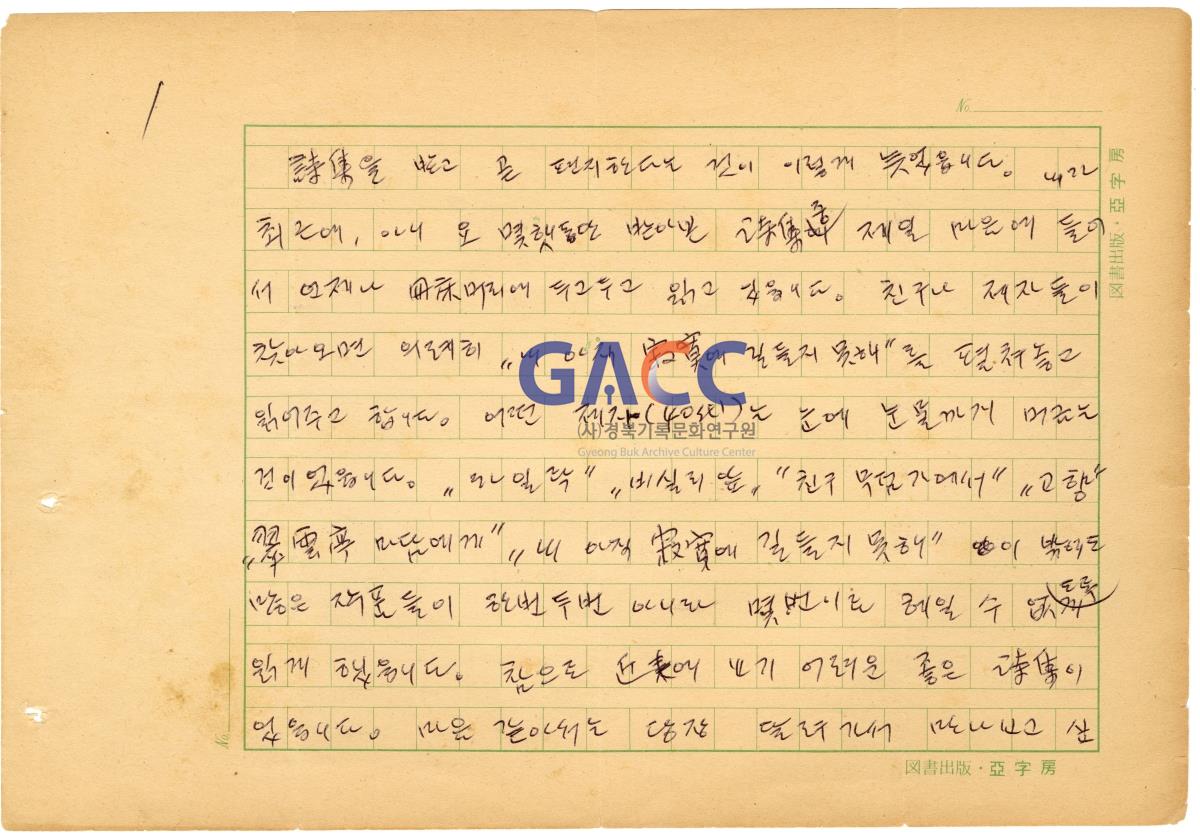 No.
詩集을 받고 곧 편지한다는 것이 이렇게 늦었읍니다. 내가
최근에, 아니 요 몇햇동안 받아본 詩集中 제일 마음에 들어
서 언제나 머리에 두고두고 읽고 있읍니다. 친구나 제자들이
찾아오면 의례히 "내 아직 寂寞에 길들지 못해"를 펼쳐놓고
읽어주고 합니다. 어떤 제자(40세)는 눈에 눈물까지 머금는
것이었읍니다. "라일락" "비실리 앞" "친구 무덤가에서" "고향"
"翠雲亭 마담에게" "내 아직 寂寞에 길들지 못해" 이 밖에도
많은 작품들이 한번 두번 아니라 몇번이로 헤일 수 없도록
읽게 했읍니다. 참으로 近來에 보기 어려운 좋은 詩集이
었읍니다. 마음 같아서는 당장 달려가서 만나고 싶
図書出版・亞字房
図書出版・亞字房
No.
GACC
(사)경북기록문화연구원
Gyeong Buk Archive Culture Center